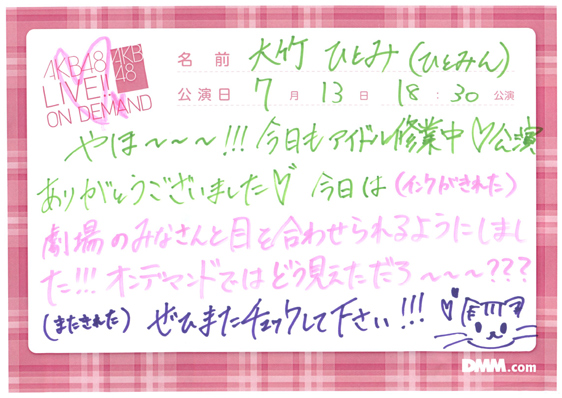 AKB48 AKB
LIVE!! 48
ON DEMAND
名前 大竹 ひとみ (ひとみん)
公演日 7月 13日 18:30 公演
やほ〜〜〜!!! 今日もアイドル修業中♡公演
ありがとうございました♡ 今日は (インクがきれた)
劇場のみなさんと目を合わせられるようにしまし
た!!! オンデマンドではどう見えただろ〜〜〜???
(またきれた) ぜひまたチェックして下さい!!!
DMM.com